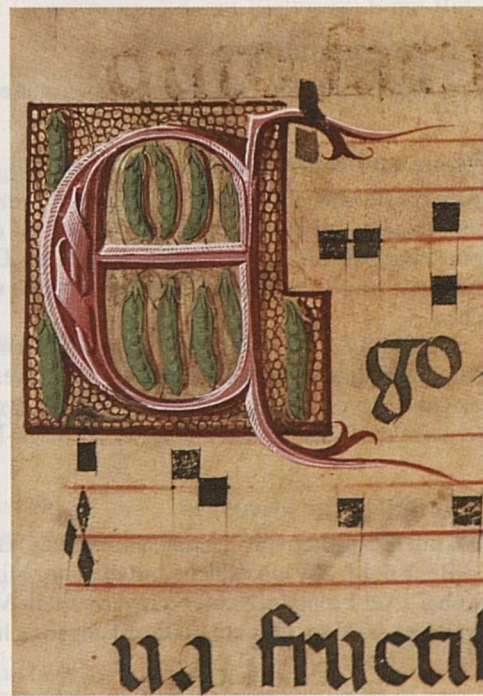 Ego
ua fructi